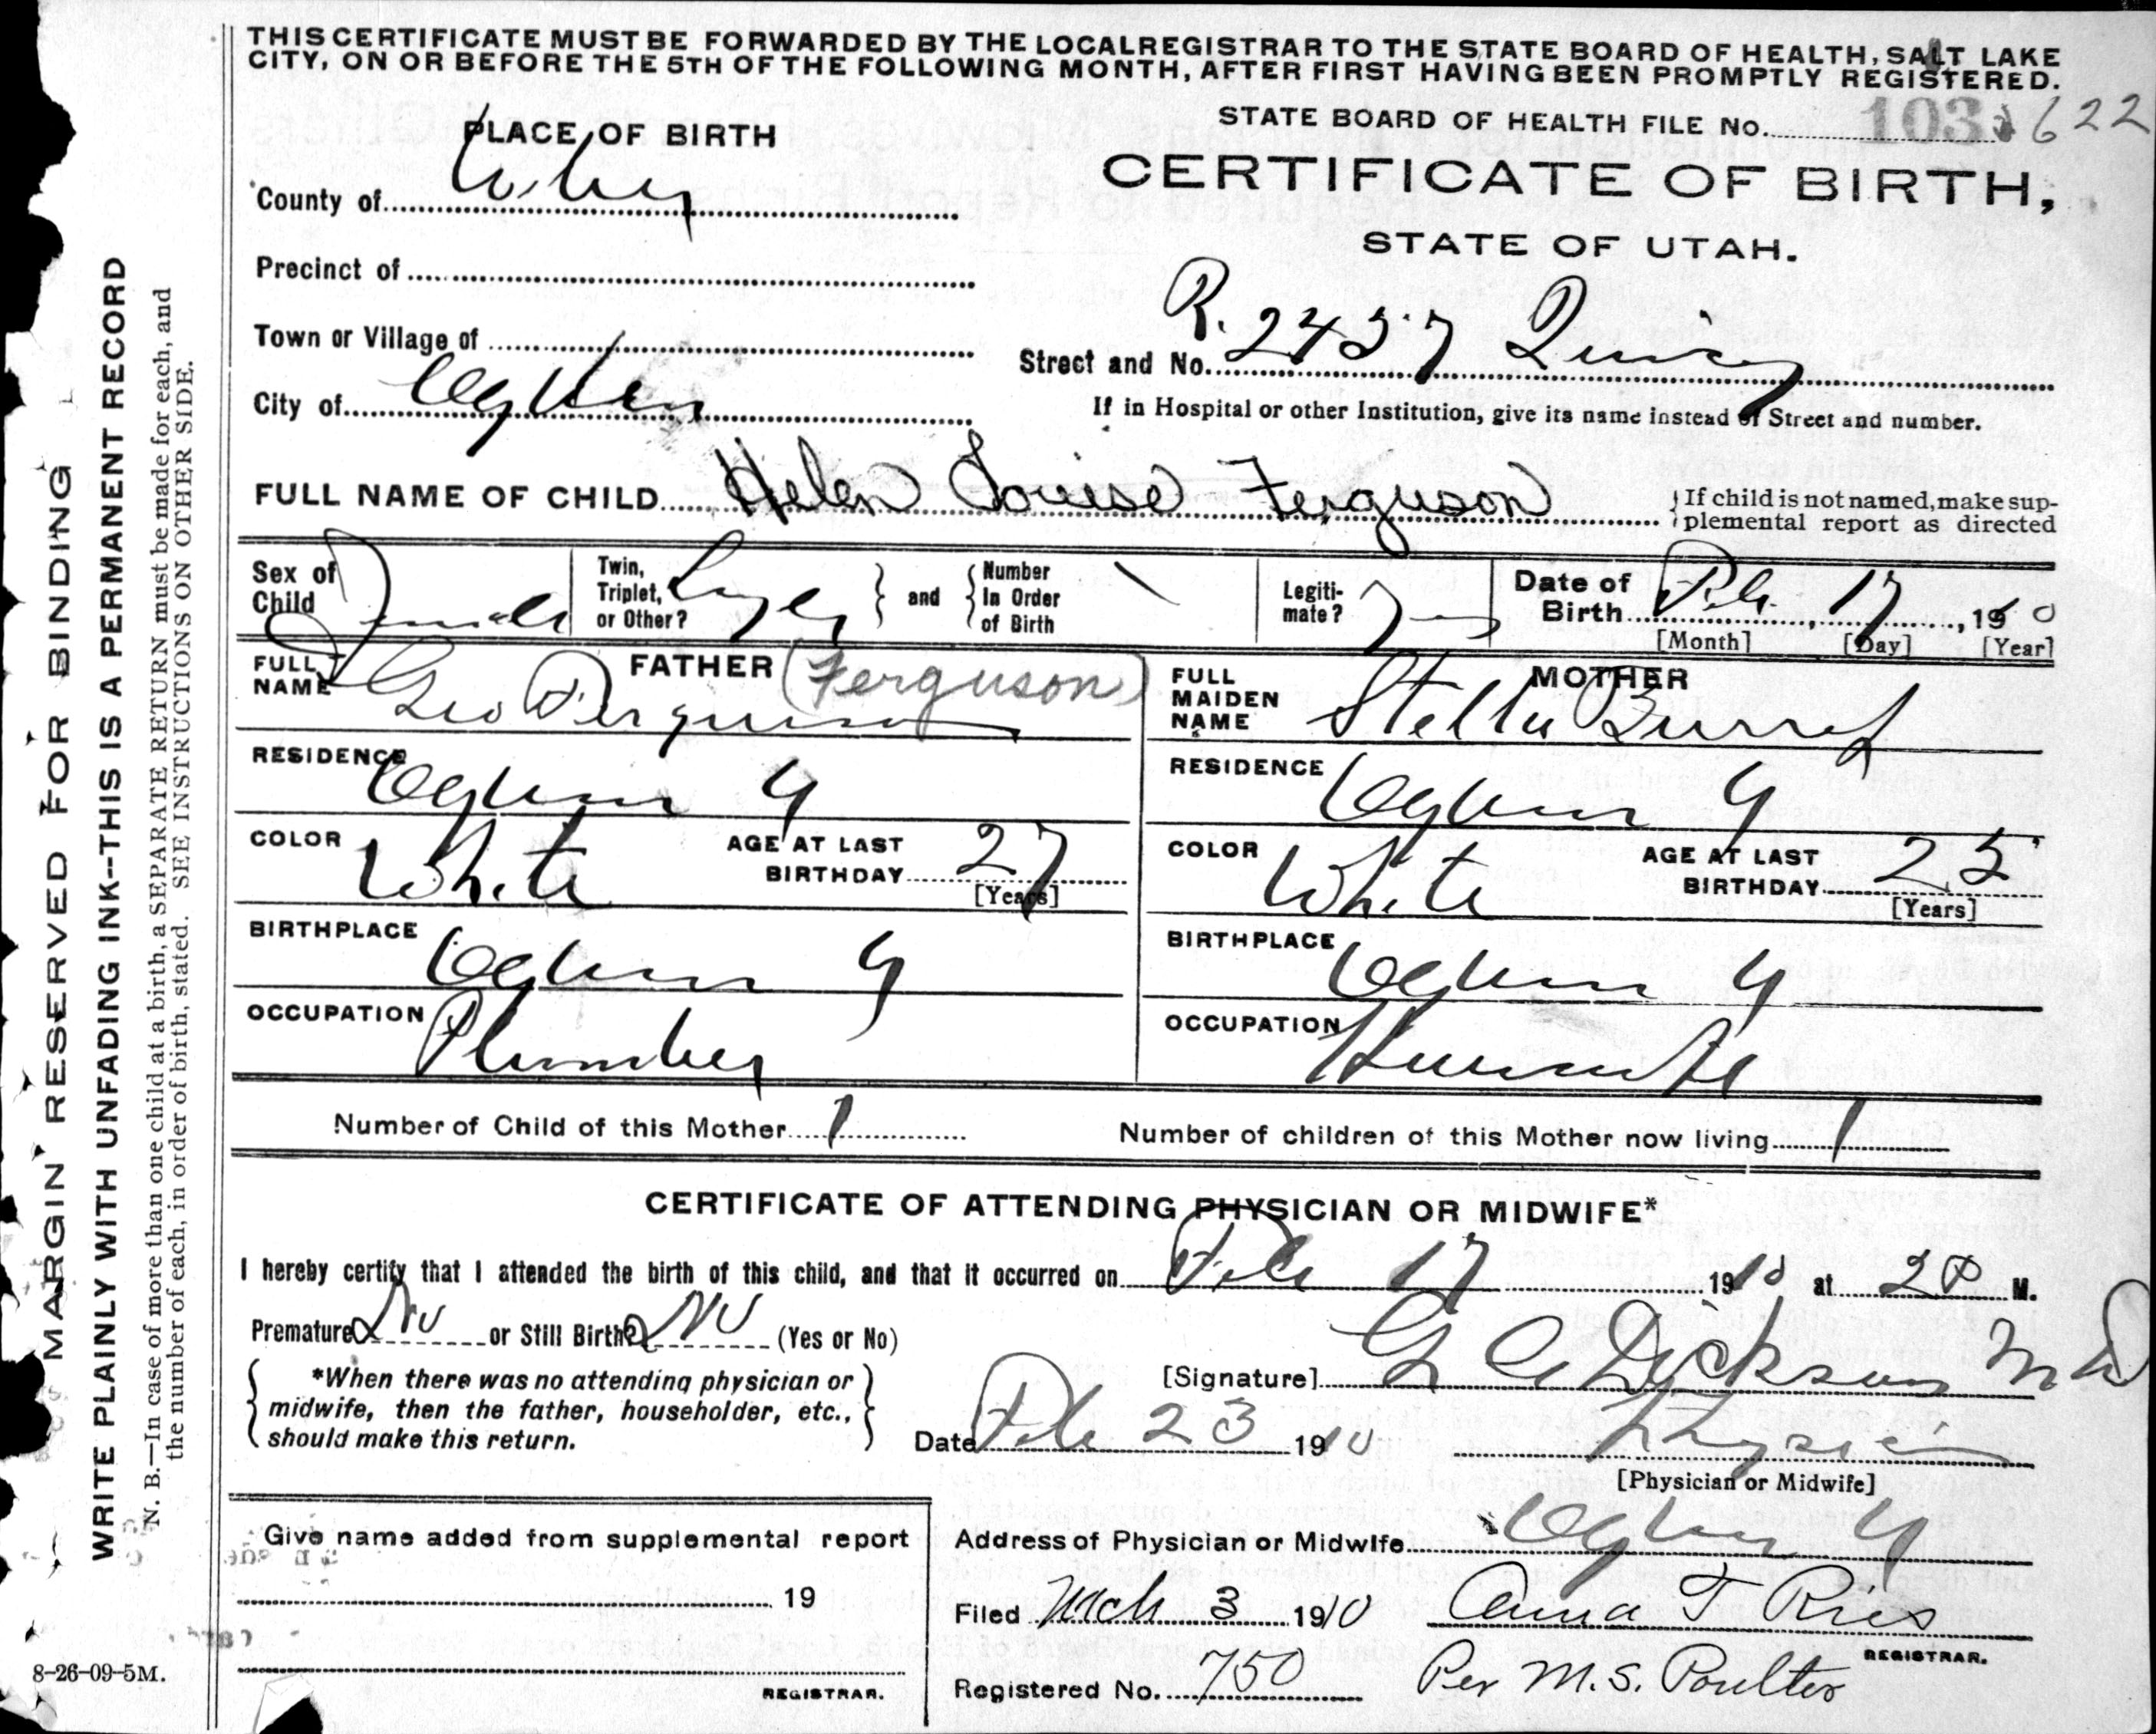 THIS CERTIFICATE MUST BE FORWARDED BY THE LOCAL REGISTRAR TO THE STATE BOARD OF HEALTH, SALT LAKE
CITY, ON OR BEFORE THE 5TH OF THE FOLLOWING MONTH, AFTER FIRST HAVING BEEN PROMPTLY REGISTERED.
STATE BOARD OF HEALTH FILE No. 103 622
PLACE OF BIRTH
CERTIFICATE OF BIRTH,
STATE OF UTAH.
County of Weber
Precinct of
Town or Village of
R.
Street and No. 2437 Quincy
City of Ogden
If in Hospital or other Institution, give its name instead of Street and number.
FULL NAME OF CHILD Helen Louise Ferguson
If child is not named, make sup-
plemental report as directed
Sex of Child Female
Twin, Triplet, or Other? Single and Number In Order of Birth
Legiti-mate?
Date of Birth Feb. 17, 1910
[Month] [Day] [Year]
FATHER
FULL NAME Geo Ferguson (Ferguson)
RESIDENCE Ogden U
COLOR White
AGE AT LAST BIRTHDAY 27
[Years]
BIRTHPLACE Ogden U
OCCUPATION Plumber
MOTHER
FULL MAIDEN NAME Stella
RESIDENCE Ogden U
COLOR White
AGE AT LAST BIRTHDAY 25
[Years]
BIRTHPLACE Ogden U
OCCUPATION Housewife
Number of Child of this Mother 1
Number of children of this Mother now living 1
CERTIFICATE OF ATTENDING PHYSICIAN OR MIDWIFE*
I hereby certify that I attended the birth of this child, and that it occurred on Feb 17 1910 at 2 P M.
Premature? No or Still Birth? No (Yes or No)
*When there was no attending physician or
midwife, then the father, householder, etc.,
should make this return.
[Signature] Dickson M D
Date Feb 23 1910
Physician
[Physician or Midwife]
Give name added from supplemental report
19
REGISTRAR.
Address of Physician or Midwife Ogden U
Filed Mch 3 1910 Anna T Ries
REGISTRAR.
Registered No. 750 Per M. S. Poulter
MARGIN RESERVED FOR BINDING
WRITE PLAINLY WITH UNFADING INK--THIS IS A PERMANENT RECORD
N. B.—In case of more than one child at a birth, a SEPARATE RETURN must be made for each, and
the number of each, in order of birth, stated. SEE INSTRUCTIONS ON OTHER SIDE.
8-26-09-5M.